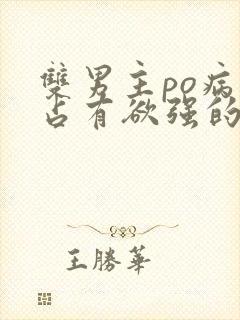 雙男主po病
占有欲强的
王勝華